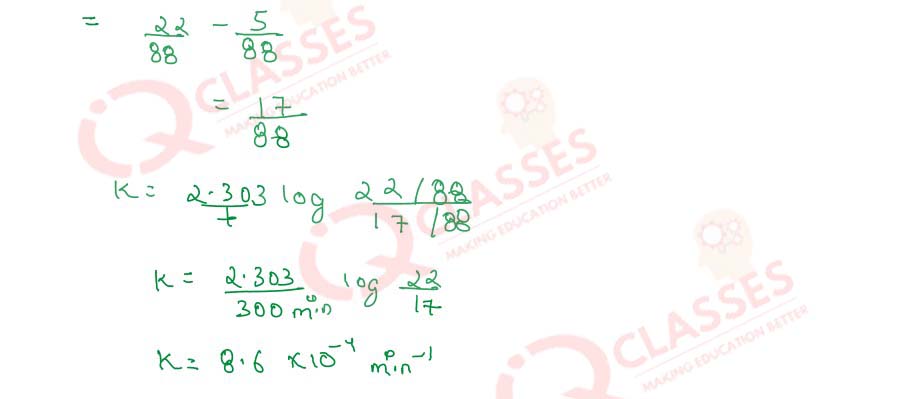 = 22/88 - 5/88
= 17/88
K = 2.303/t log 22/88 / 17/88
K = 2.303/300 min log 22/17
K = 8.6 × 10⁻⁴ min⁻¹
CLASSES
MAKING EDUCATION BETTER
CLASSES
MAKING EDUCATION BETTER
CLASSES
MAKING EDUCATION BETTER